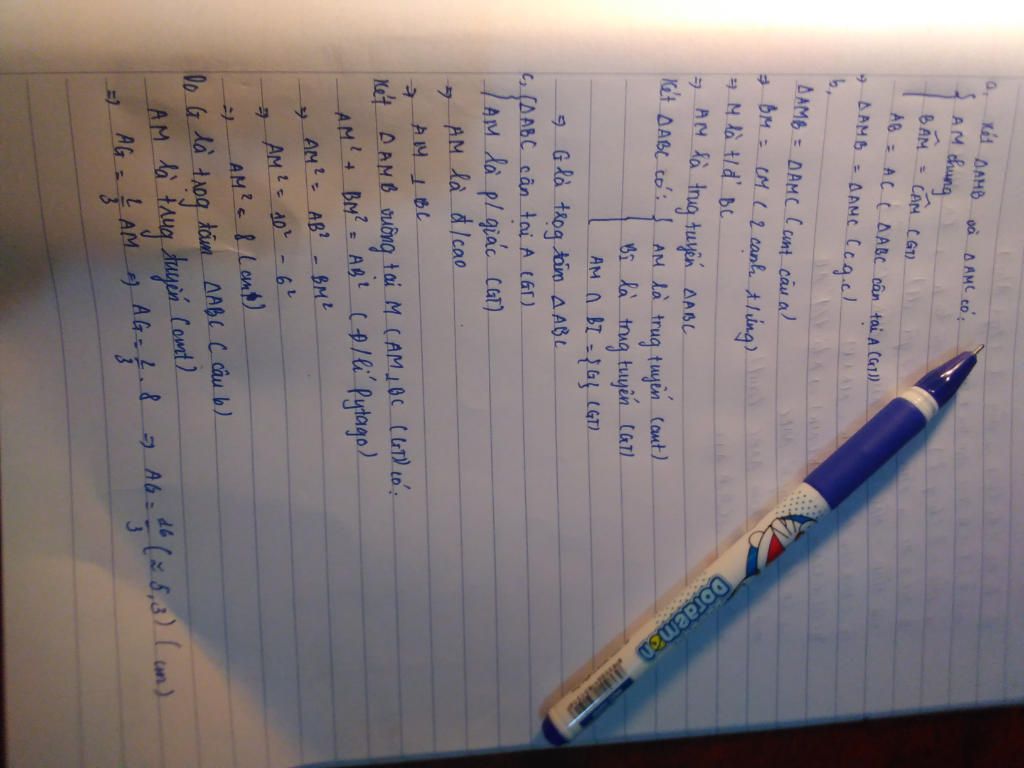 a, Xét ΔAMB và ΔAMC có:
{ AM chung
BÂM = CÂM (GT)
AB = AC ( ΔABC cân tại A (GT))
→ ΔAMB = ΔAMC (c.g.c)
b,
ΔAMB = ΔAMC (cmt câu a)
⇒ BM = CM ( 2 cạnh t/ứng)
⇒ M là t/đ BC
⇒ AM là trug tuyến ΔABC
Xét ΔABC có: { AM là trug tuyến (cmt)
BI là trong tuyến (GT)
AM ∩ BI = {G} (GT)
⇒ G là trọg tâm ΔABC
c, { ΔABC cân tại A (GT)
AM là p/giác (GT)
⇒ AM là đ/cao
⇒ AM ⊥ BC
Xét ΔAMB vuông tại M (AM⊥BC (GT)) có:
AM² + BM² = AB² ( Đ/lí Pytago)
⇒ AM² = AB² - BM²
⇒ AM² = 10² - 6²
⇒ AM² = 8 (cm)
Do G là trọg tâm ΔABC ( câu b)
AM là trug tuyến (cmt)
⇒ AG = 2/3 AM ⇒ AG = 2/3 . 8 ⇒ AG = 16/3 (≈ 5,3) (cm)
Doraemon